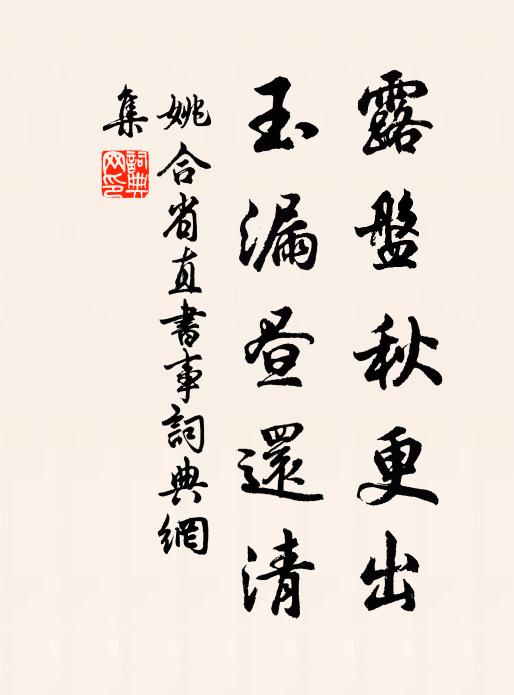 露盤秋更出
玉漏昼還清
姚合省直書事詞典網
集
詞典網印